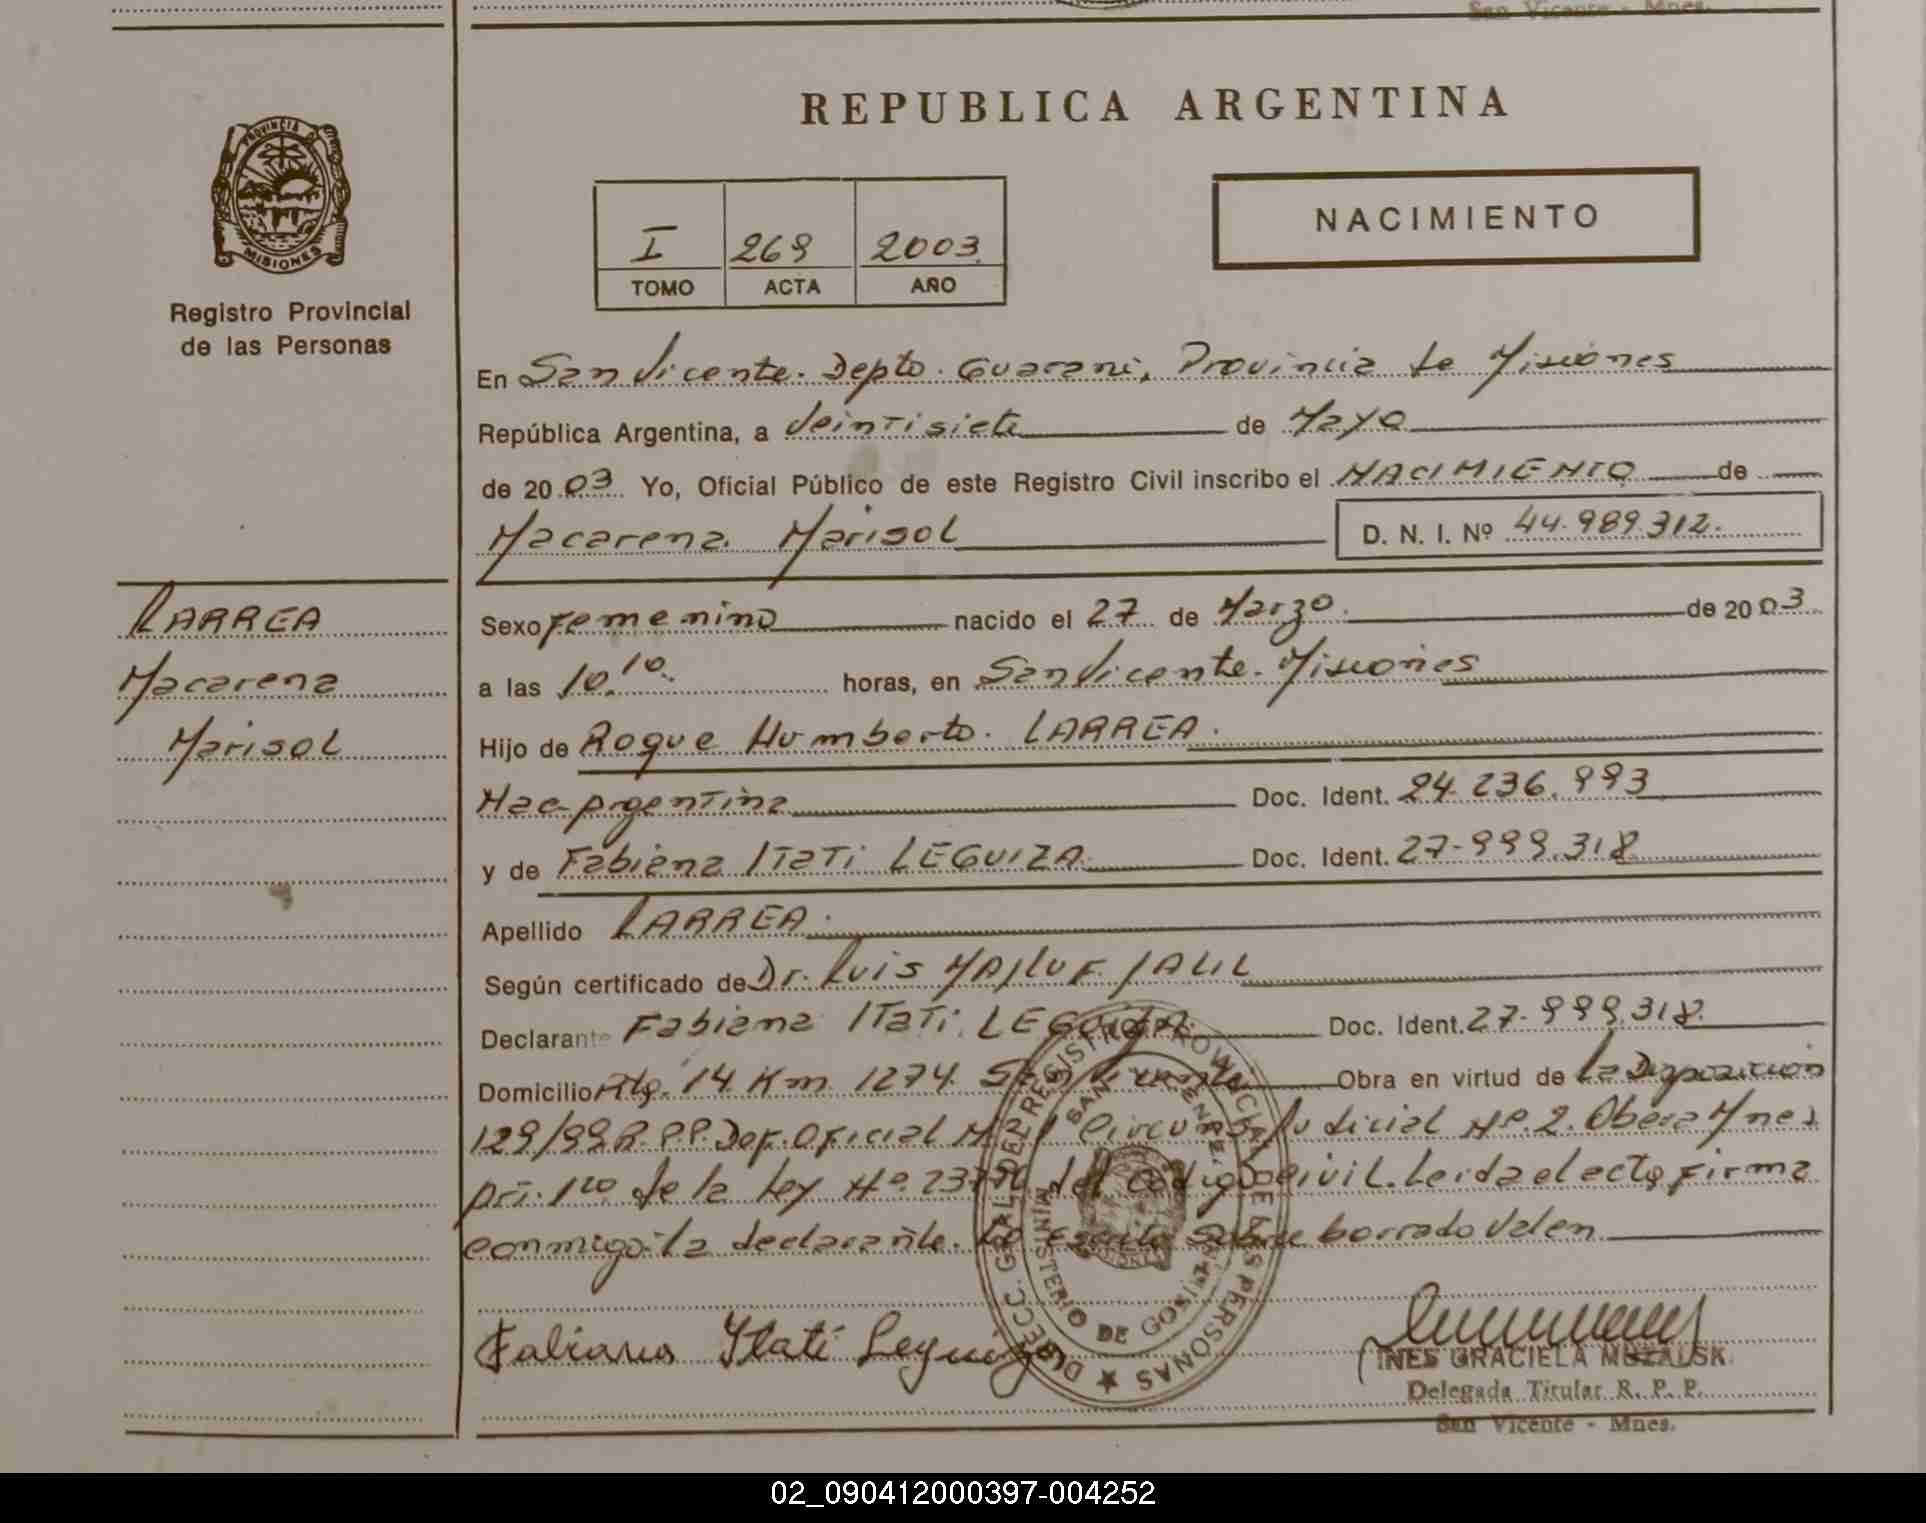 San Vicente - Mnes.
REPUBLICA ARGENTINA
PROVINCIA DE
MISIONES
Registro Provincial
de las Personas
I 269 2003
TOMO ACTA AÑO
NACIMIENTO
En San Vicente. Depto. Guarani, Provincia de Misiones
República Argentina, a Veintisiete de Mayo
de 2003 Yo, Oficial Público de este Registro Civil inscribo el NACIMIENTO de
Macarena Marisol D. N. I. Nº 44.989.312.
LARREA
Macarena
Marisol
Sexo Femenino nacido el 27 de Marzo. de 2003
a las 10.10. horas, en San Vicente. Misiones
Hijo de Roque Humberto. LARREA.
Nac. Argentina Doc. Ident. 24.236.993
y de Fabiana Itati LEGUIZA Doc. Ident. 27.999.318
Apellido LARREA.
Según certificado de Dr. Luis Majluf JALIL
Declarante Fabiana Itati. LEGUIZA Doc. Ident. 27.999.318.
Domicilio Rta. 14 Km. 1274. San Vicente Obra en virtud de La Disposicion
129/99 R.P.P. Def. Oficial Nº 1 Circuns. Judicial Nº. 2. Obera Mnes
Art. 1ro de la Ley Nº. del Codigo Civil. Leida el acta, firma
conmigo la declarante. Lo Escrito sobre borrado Valen
Fabiana Itatí Leguiza
DIRECC. GRAL. DEL REGISTRO PROVINCIAL DE LAS PERSONAS
MINISTERIO DE GOBIERNO
SAN VICENTE
INES GRACIELA MUZALSK
Delegada Titular R. P. P.
San Vicente - Mnes.
02_090412000397-004252